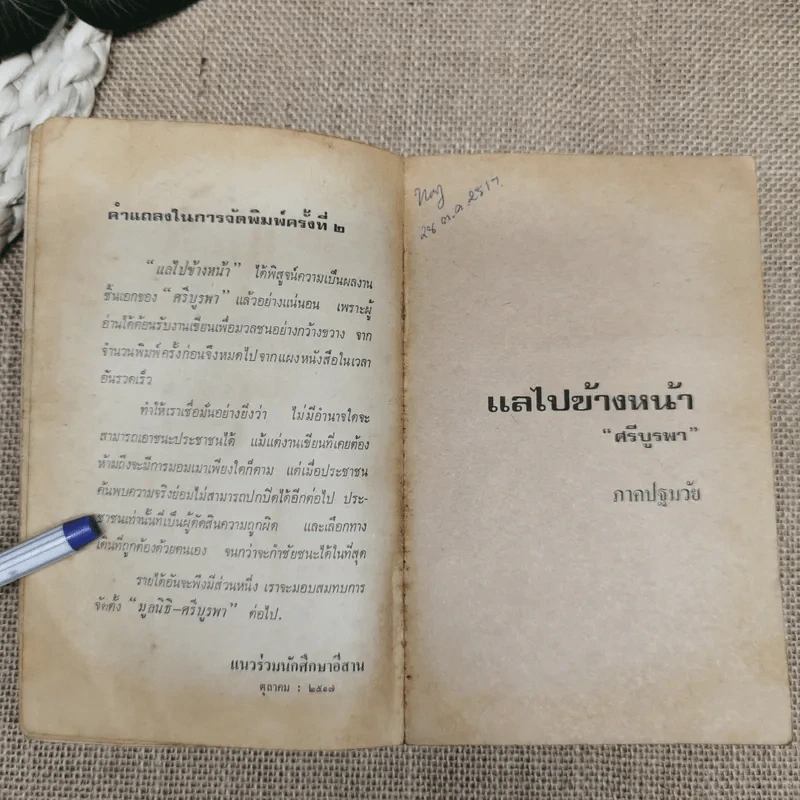 คำแถลงในการจัดพิมพ์ครั้งที่ ๒
“แลไปข้างหน้า” ได้พิสูจน์ความเป็นผลงาน
ชิ้นเอกของ “ศรีบูรพา” แล้วอย่างแน่นอน เพราะผู้
อ่านได้ต้อนรับงานเขียนเพื่อมวลชนอย่างกว้างขวาง จาก
จำนวนพิมพ์ครั้งก่อนจึงหมดไปจากแผงหนังสือในเวลา
อันรวดเร็ว
ทำให้เราเชื่อมั่นอย่างยิ่งว่า ไม่มีอำนาจใดจะ
สามารถเอาชนะประชาชนได้ แม้แต่งานเขียนที่เคยต้อง
ห้ามถึงจะมีการมอมเมาเพียงใดก็ตาม แต่เมื่อประชาชน
ค้นพบความจริงย่อมไม่สามารถปกปิดได้อีกต่อไป ประ-
ชาชนเท่านั้นที่เป็นผู้ตัดสินความถูกผิด และเลือกทาง
เดินที่ถูกต้องด้วยตนเอง จนกว่าจะกำชัยชนะได้ในที่สุด
รายได้อันจะพึงมีส่วนหนึ่ง เราจะมอบสมทบการ
จัดตั้ง “มูลนิธิ-ศรีบูรพา” ต่อไป.
แนวร่วมนักศึกษาอีสาน
ตุลาคม : ๒๕๑๗
28 ต.ค. 2517.
แลไปข้างหน้า
“ศรีบูรพา”
ภาคปฐมวัย